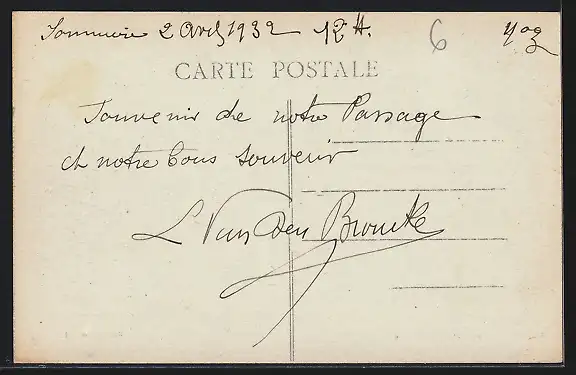 2 Avril 1932 12 H. 6
CARTE POSTALE
Souvenir de notre Passage
et notre bons souvenir
L Van Den Broucke